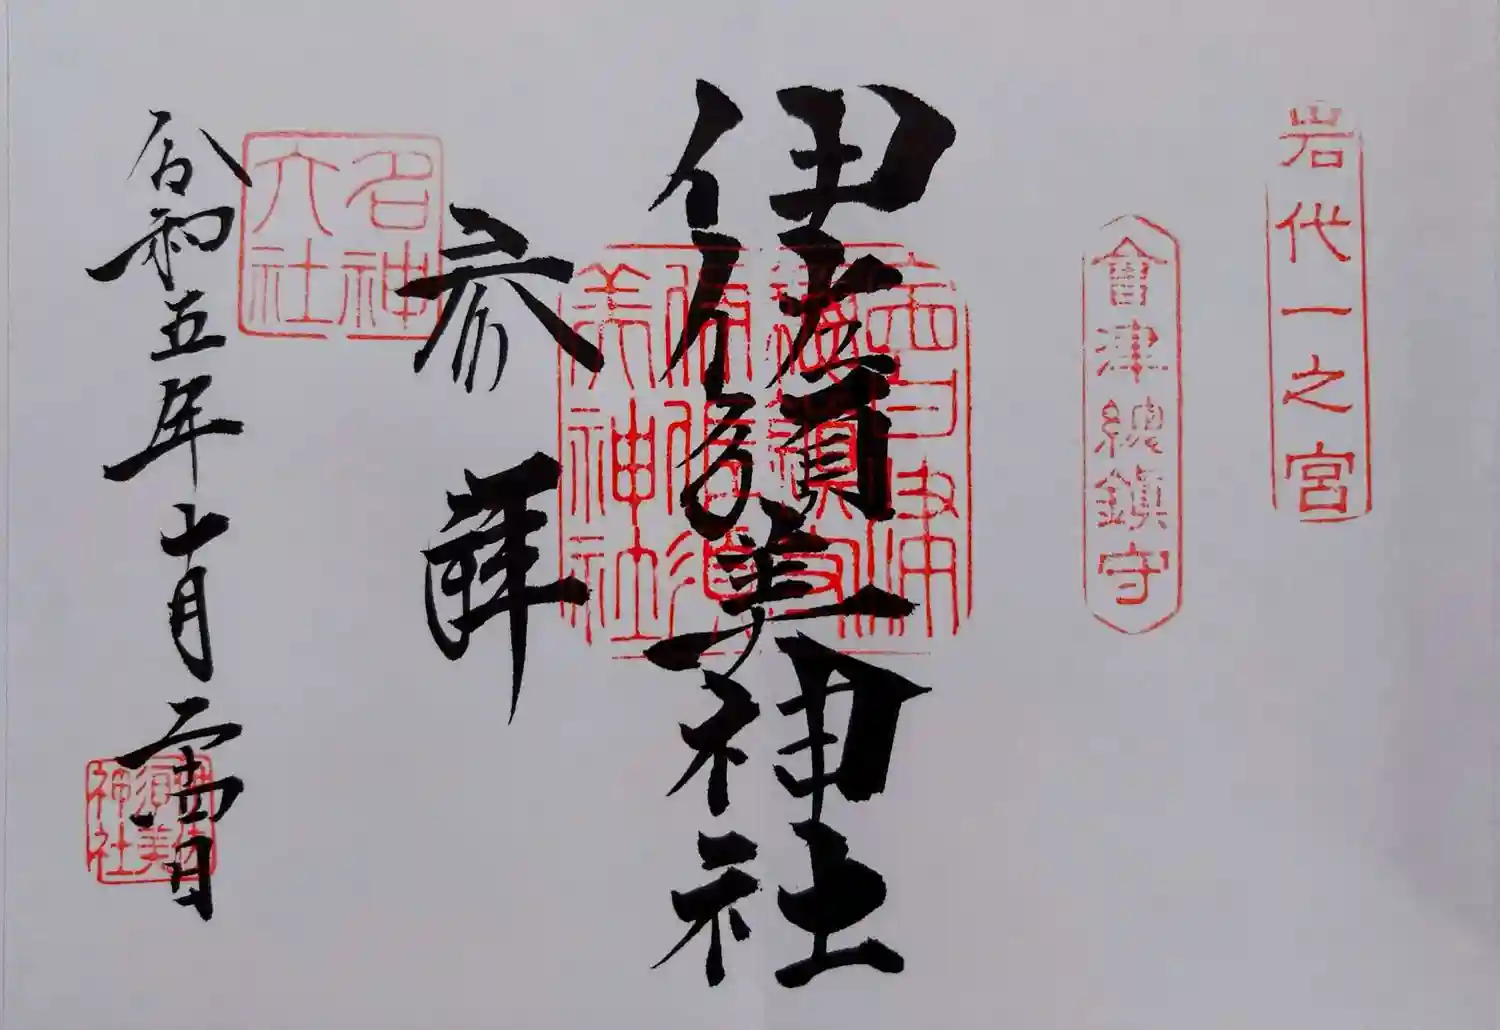 岩代一之宮
會津總鎮守
伊佐須美神社
會津
總鎮守
伊佐須
美神社
参拝
名神
大社
令和五年十月二十四日
伊佐
須美
神社